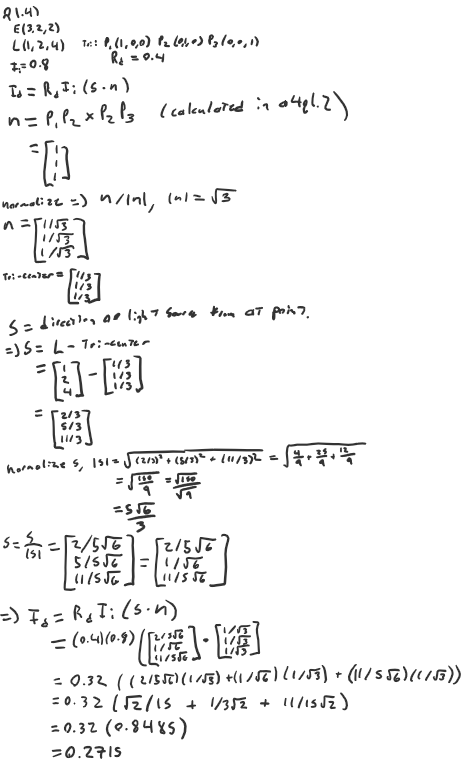 Q1.4)
E(3,2,2)
L(1,2,4) Tri: P₁(1,0,0) P₂(0,1,0) P₃(0,0,1)
Iᵢ=0.8 R_d = 0.4
I_d = R_d Iᵢ (s·n)
n = P₁P₂ × P₂P₃ (calculated in a4q1.2)
= [1 1 1]
normalize => n/|n|, |n| = √3
n = [1/√3 1/√3 1/√3]
Tri-center = [1/3 1/3 1/3]
S = direction of light source from at point.
=> S = L - Tri-center
= [1 2 4] - [1/3 1/3 1/3]
= [2/3 5/3 11/3]
normalize s, |s| = √((2/3)² + (5/3)² + (11/3)²) = √(4/9 + 25/9 + 12/9)
= √(150/9) = √150/√9
= 5√6/3
S = S/|s| = [2/5√6 5/5√6 11/5√6] = [2/5√6 1/√6 11/5√6]
=> I_d = R_d Iᵢ (s·n)
= (0.4)(0.8) ([2/5√6 1/√6 11/5√6] · [1/√3 1/√3 1/√3])
= 0.32 ((2/5√6)(1/√3) + (1/√6)(1/√3) + (11/5√6)(1/√3))
= 0.32 (√2/15 + 1/3√2 + 11/15√2)
= 0.32 (0.8485)
= 0.2715